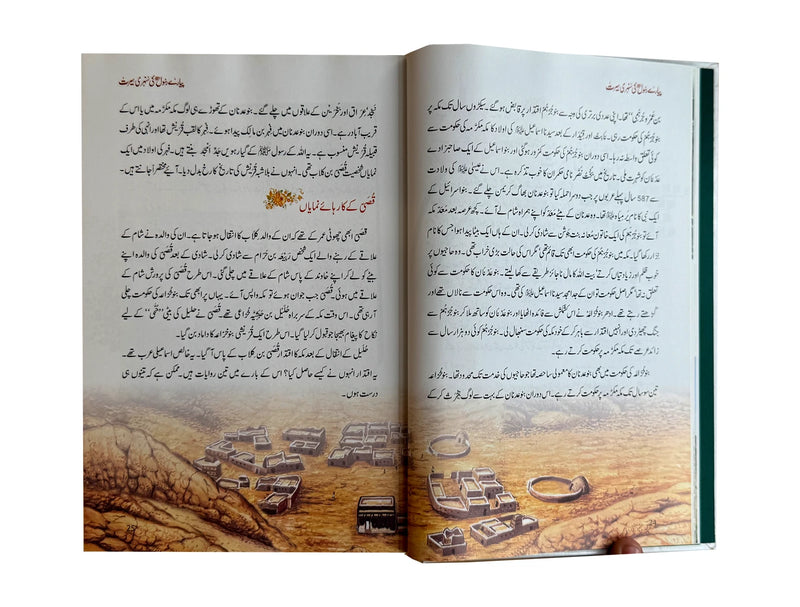 پیارے رسول ﷺ کی سنہری سیرت
بن عمرو جرہمی" تھا۔ اپنی عددی برتری کی وجہ سے بنو جرہم اقتدار پر قابض ہو گئے۔ سیکڑوں سال تک مکہ پر
بنو جرہم کی حکومت رہی۔ نابت اور قیدار کے بعد سیدنا اسماعیل علیہ السلام کی اولاد کا مکہ مکرمہ کی حکومت سے
کوئی تعلق واسطہ نہ رہا۔ اسی دوران بنو جرہم کی حکومت کمزور ہوگئی اور بنو اسماعیل کے ایک صاحبزادے
عدنان کو شہرت ملی۔ تاریخ میں بخت نصر نامی حکمران کا خوب تذکرہ ہے۔ اس نے عیسیٰ علیہ السلام کی ولادت
سے 587 سال پہلے عربوں پر جب دوسرا حملہ کیا تو بنو عدنان بھاگ کر یمن چلے گئے۔ بنو اسرائیل کے
ایک نبی کا نام یرمیاہ علیہ السلام تھا۔ وہ عدنان کے بیٹے معد کو اپنے ہمراہ شام لے آئے۔ کچھ عرصہ بعد معد مکہ
آئے تو بنو جرہم کی ایک خاتون معانہ بنت جوشن سے شادی کر لی۔ ان کے ہاں ایک بیٹا پیدا ہوا جس کا نام
نزار رکھا۔ مکہ میں بنو جرہم کی حکومت ابھی تک قائم تھی مگر اس کی حالت بڑی خراب تھی۔ وہ حاجیوں پر
خوب ظلم اور زیادتیاں کرتے، بیت اللہ کا مال ناجائز طریقے سے کھا لیتے۔ بنو عدنان کا حکومت سے کوئی
تعلق نہ تھا مگر اصل حکومت تو ان کے جد امجد سیدنا اسماعیل علیہ السلام کی تھی۔ وہ اس حکومت سے نالاں تھے اور
کڑھتے رہتے تھے۔ ادھر بنو خزاعہ نے اس کشمکش سے فائدہ اٹھایا اور بنو عدنان کو ساتھ ملا کر بنو جرہم سے
جنگ چھیڑ دی اور انہیں اقتدار سے باہر کر کے خود مکہ کی حکومت سنبھال لی۔ بنو جرہم کوئی دو ہزار سال سے
زائد عرصے تک مکہ مکرمہ پر حکومت کرتے رہے۔
بنو خزاعہ کی حکومت میں بھی بنو عدنان کا معمولی سا حصہ تھا جو حاجیوں کی خدمت تک محدود تھا۔ بنو خزاعہ
تین سو سال تک مکہ مکرمہ پر حکومت کرتے رہے۔ اس دوران بنو عدنان کے بہت سے لوگ ہجرت کر کے
پیارے رسول ﷺ کی سنہری سیرت
نجد، عراق اور بحرین کے علاقوں میں چلے گئے۔ بنو عدنان کے تھوڑے ہی لوگ مکہ مکرمہ میں یا اس کے
قریب آباد رہے۔ اسی دوران بنو عدنان میں فہر بن مالک پیدا ہوئے۔ فہر کا لقب قریش تھا اور انہی کی طرف
قبیلہ قریش منسوب ہے۔ یہ اللہ کے رسول ﷺ کے گیارھویں جد امجد بنتے ہیں۔ فہر کی اولاد میں ایک
نمایاں شخصیت قصی بن کلاب تھی۔ انہوں نے بلاشبہ قریش کی تاریخ کا رخ بدل دیا۔ آیئے مختصراً جانتے ہیں۔
قصی کے کارہائے نمایاں
قصی ابھی چھوٹی عمر کے تھے کہ ان کے والد کلاب کا انتقال ہو جاتا ہے۔ ان کی والدہ نے شام کے
علاقے کے رہنے والے ایک شخص ربیعہ بن حرام سے شادی کر لی۔ شادی کے بعد قصی کی والدہ اپنے
بیٹے کو لے کر اپنے خاوند کے پاس شام کے علاقے میں چلی گئی۔ اس طرح قصی کی پرورش شام کے
علاقے میں ہوئی۔ قصی جب جوان ہوئے تو مکہ واپس آئے۔ یہاں پر ابھی تک بنو خزاعہ کی حکومت چلی
آ رہی تھی۔ اس وقت مکہ کے سربراہ حلیل بن حبشیہ خزاعی تھے۔ قصی نے حلیل کی بیٹی "حبّٰی" کے لیے
نکاح کا پیغام بھیجا جو قبول کر لیا گیا۔ اس طرح ایک قریشی بنو خزاعہ کا داماد بن گیا۔
حلیل کے انتقال کے بعد مکہ کا اقتدار قصی بن کلاب کے پاس آ گیا۔ یہ خالص اسماعیلی عرب تھے۔
یہ اقتدار انہوں نے کیسے حاصل کیا؟ اس کے بارے میں تین روایات ہیں، ممکن ہے کہ تینوں ہی
درست ہوں۔
25